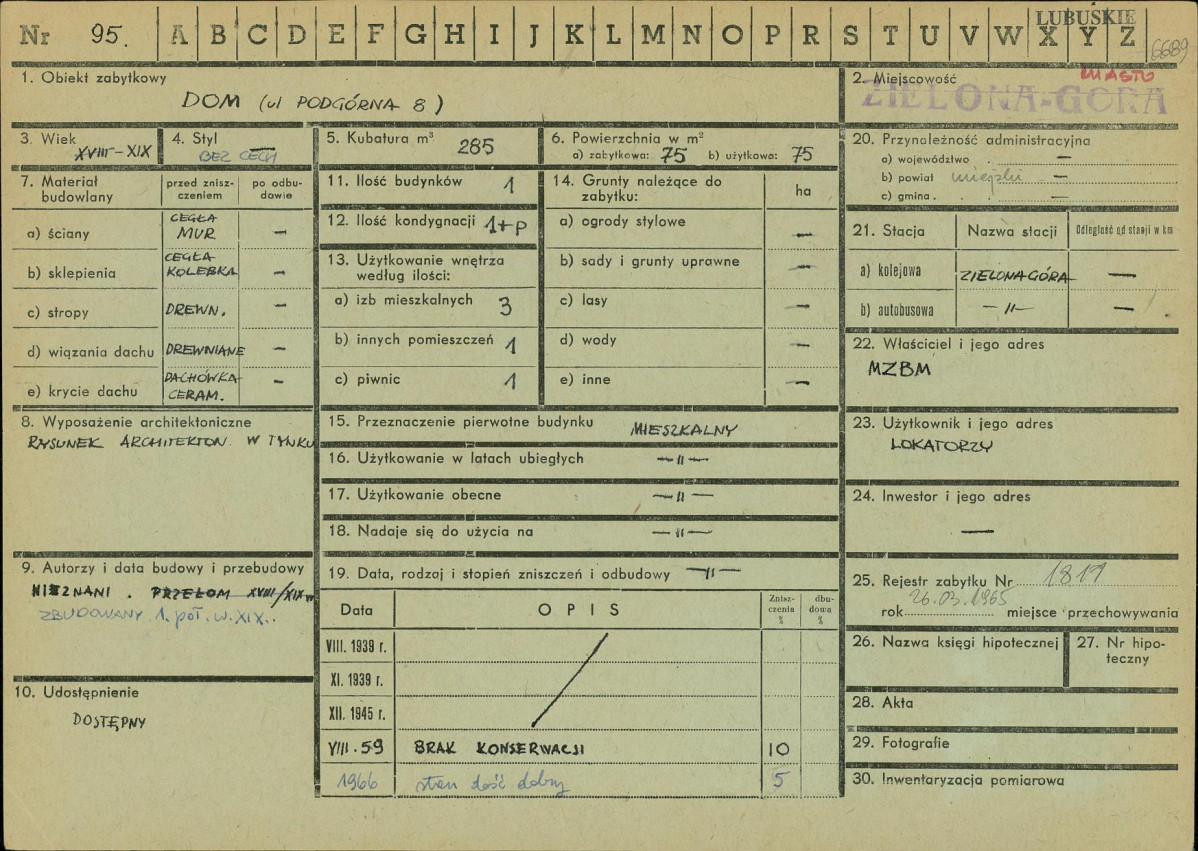 Nr 95. A B C D E F G H I J K L M N O P R S T U V W X Y Z
LUBUSKIE
6689
1. Obiekt zabytkowy
DOM (ul PODGÓRNA 8)
2. Miejscowość
MIASTO
ZIELONA-GÓRA
3. Wiek
XVIII-XIX
4. Styl
BEZ CECH
5. Kubatura m³ 285
6. Powierzchnia w m²
a) zabytkowa: 75 b) użytkowa: 75
7. Materiał budowlany
przed zniszczeniem
po odbudowie
a) ściany CEGŁA MUR —
b) sklepienia CEGŁA KOLEBKA —
c) stropy DREWN. —
d) wiązania dachu DREWNIANE —
e) krycie dachu DACHÓWKA CERAM. —
8. Wyposażenie architektoniczne
RYSUNEK ARCHITEKTON. W TYNKU
9. Autorzy i data budowy i przebudowy
NIEZNANI. PRZEŁOM XVIII/XIX w
ZBUDOWANY 1. poł. w. XIX..
10. Udostępnienie
DOSTĘPNY
11. Ilość budynków 1
12. Ilość kondygnacji 1+P
13. Użytkowanie wnętrza według ilości:
a) izb mieszkalnych 3
b) innych pomieszczeń 1
c) piwnic 1
14. Grunty należące do zabytku: ha
a) ogrody stylowe —
b) sady i grunty uprawne —
c) lasy —
d) wody —
e) inne —
15. Przeznaczenie pierwotne budynku MIESZKALNY
16. Użytkowanie w latach ubiegłych —"—
17. Użytkowanie obecne —"—
18. Nadaje się do użycia na —"—
19. Data, rodzaj i stopień zniszczeń i odbudowy —"—
Data OPIS Zniszczenia % dbudowa %
VIII. 1939 r.
XI. 1939 r.
XII. 1945 r.
VIII. 59 BRAK KONSERWACJI 10
1966 stan dość dobry 5
20. Przynależność administracyjna
a) województwo . —
b) powiat miejski —
c) gmina . —
21. Stacja Nazwa stacji Odległość od stacji w km
a) kolejowa ZIELONA GÓRA —
b) autobusowa —"— —
22. Właściciel i jego adres
MZBM
23. Użytkownik i jego adres
LOKATORZY
24. Inwestor i jego adres
—
25. Rejestr zabytku Nr 1819
26.03.1965
rok miejsce przechowywania
26. Nazwa księgi hipotecznej
27. Nr hipoteczny
28. Akta
29. Fotografie
30. Inwentaryzacja pomiarowa